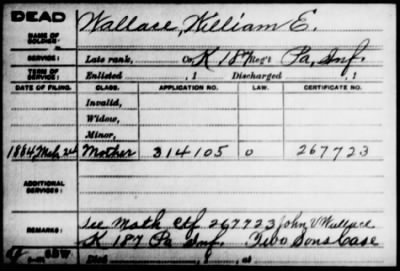 DEAD
NAME OF SOLDIER: Wallace, William E.
SERVICE: Late rank, Co. K 187 Reg't Pa, Inf.
TERM OF SERVICE: Enlisted , 1 Discharged , 1
DATE OF FILING. CLASS. APPLICATION NO. LAW. CERTIFICATE NO.
Invalid,
Widow,
Minor,
1884 Mch 24 Mother 314105 0 267723
ADDITIONAL SERVICES:
REMARKS: See Moth Ctf 267723 John V Wallace
K 187 Pa Inf. Two Sons Case
Died , at